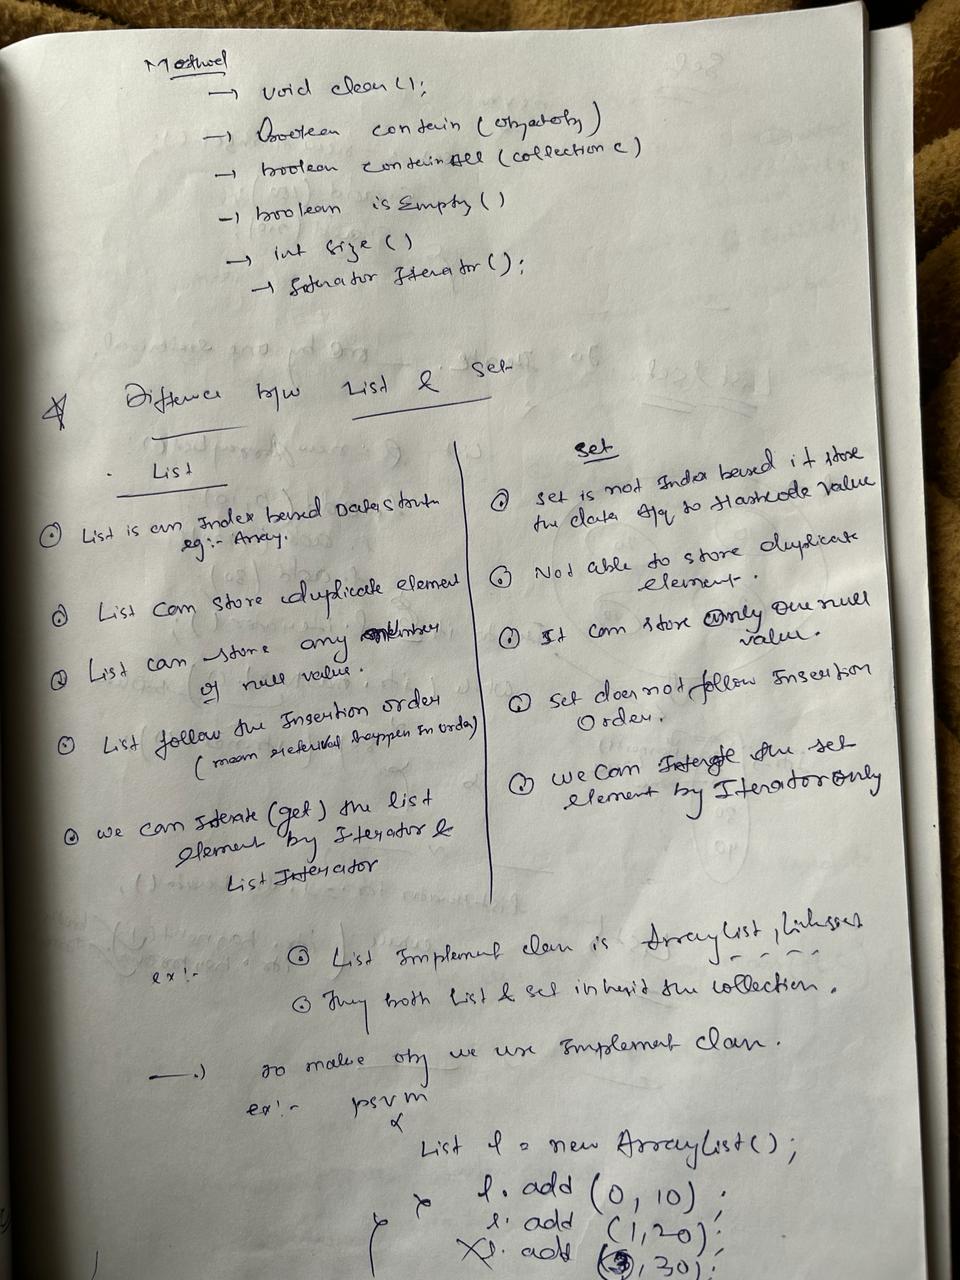 Method
→ void clear();
→ Boolean contain (object obj)
→ boolean containAll (collection c)
→ boolean isEmpty()
→ int size()
→ Iterator Iterator();
Diffence b/w List & Set
List
⊙ List is an Index besed
eg:- Array.
⊙ List can store duplicate element
⊙ List can store any number
of null value.
⊙ List follow the Insertion order
(mean retrieval happen in order)
⊙ we can Iterate (get) the list
element by Iterator &
List Interator
Set
⊙ set is not Index besed it store
the data A/q to Hashcode value
⊙ Not able to store duplicate
element.
⊙ It can store only one null
value.
⊙ Set does not follow Insertion
Order.
⊙ we can the set
element by Iterator only
ex:- ⊙ List Implement class is ArrayList,
⊙ They both List & set inherit the collection.
→ To make obj we use Implement class.
ex:- psvm
{
List l = new ArrayList();
l. add (0, 10);
l. add (1,20);
l. add (3, 30);